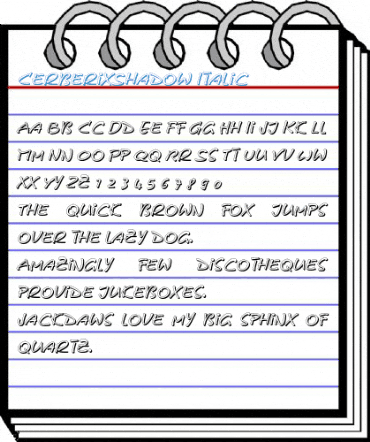 CERBERIXSHADOW ITALIC
AA BB CC DD EE FF GG HH II JJ KK LL
MM NN OO PP QQ RR SS TT UU VV WW
XX YY ZZ 1 2 3 4 5 6 7 8 9 0
THE QUICK BROWN FOX JUMPS
OVER THE LAZY DOG.
AMAZINGLY FEW DISCOTHEQUES
PROVIDE JUKEBOXES.
JACKDAWS LOVE MY BIG SPHINX OF
QUARTZ.